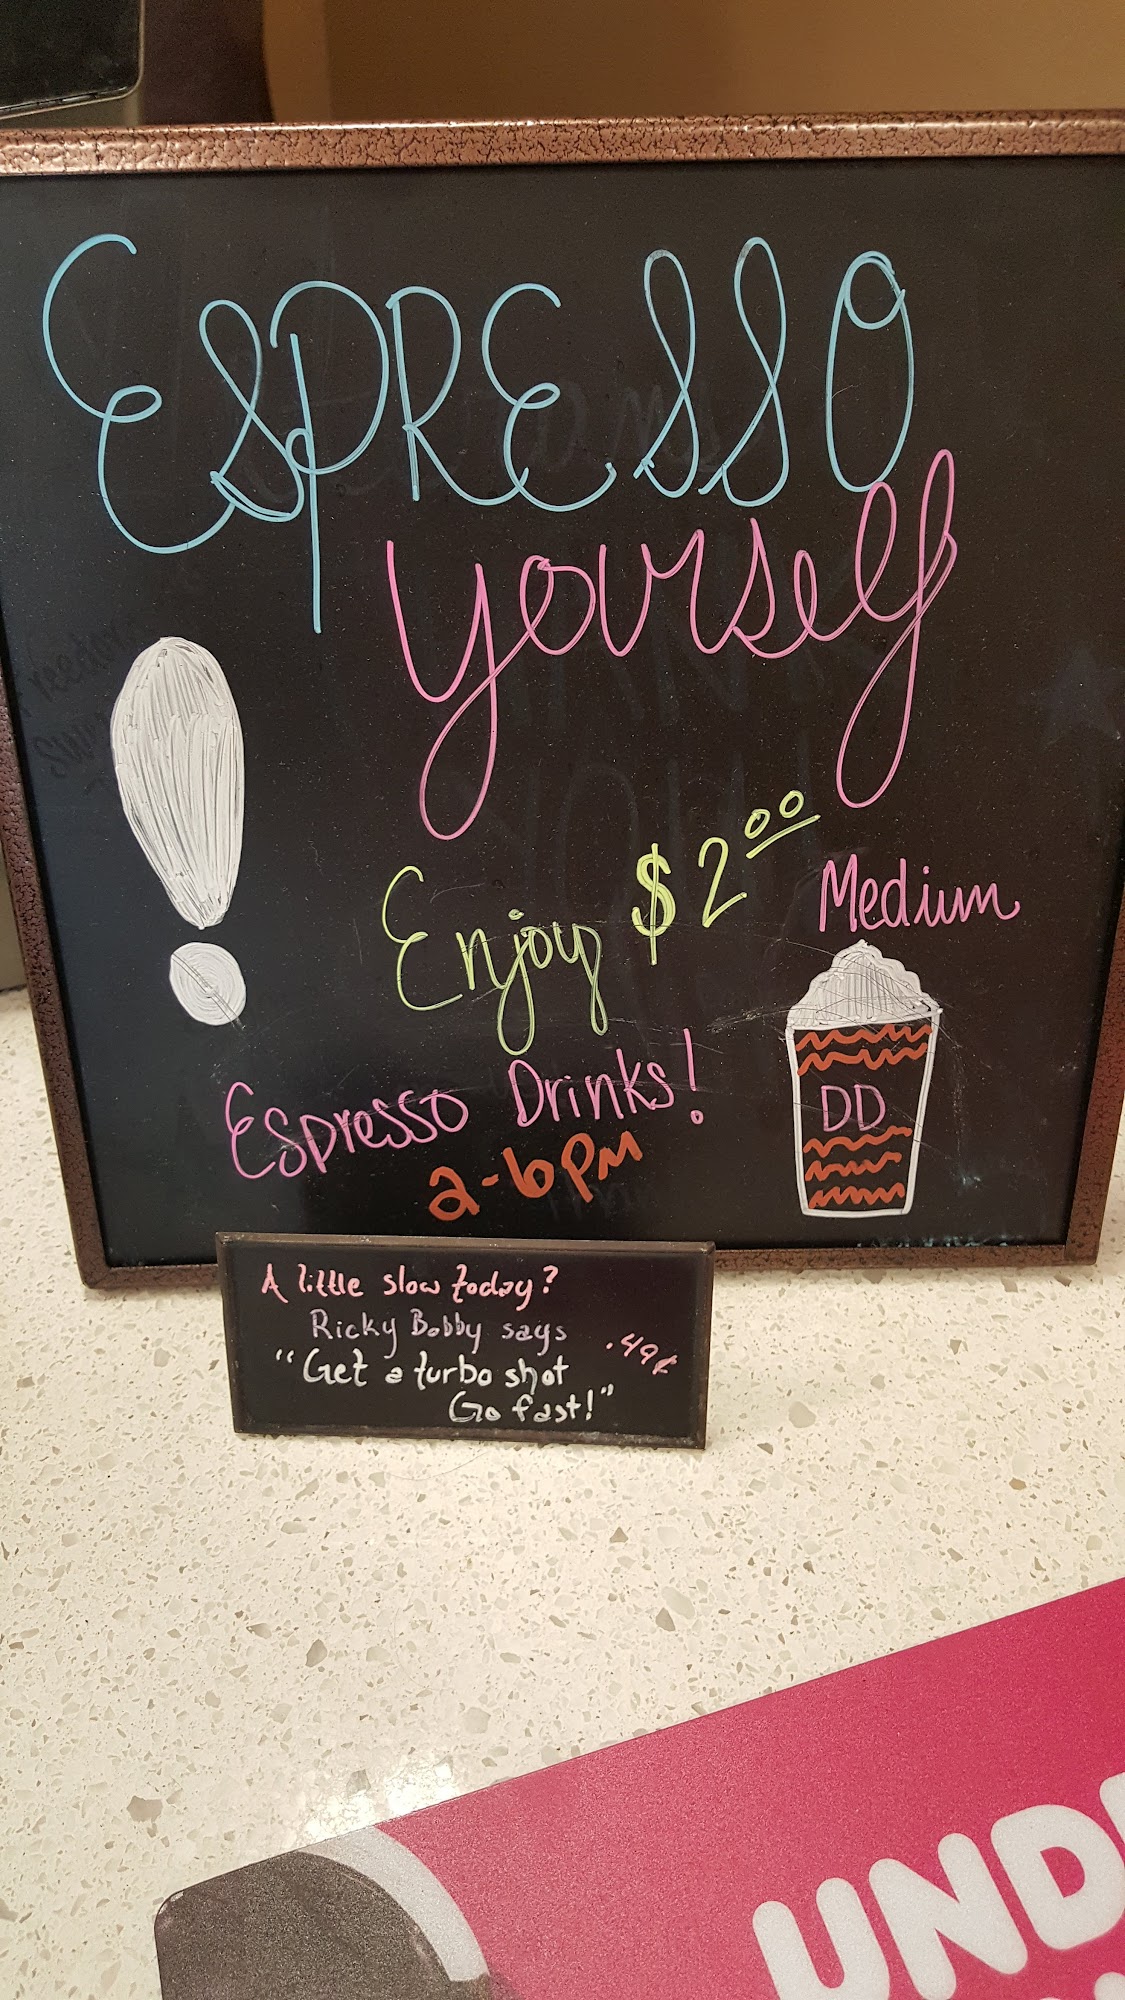 ESPRESSO
yourself
!
Enjoy $2.00
Medium
Espresso Drinks!
2-6PM
DD
A little slow today?
Ricky Bobby says
.49¢
"Get a turbo shot
Go fast!"
UND